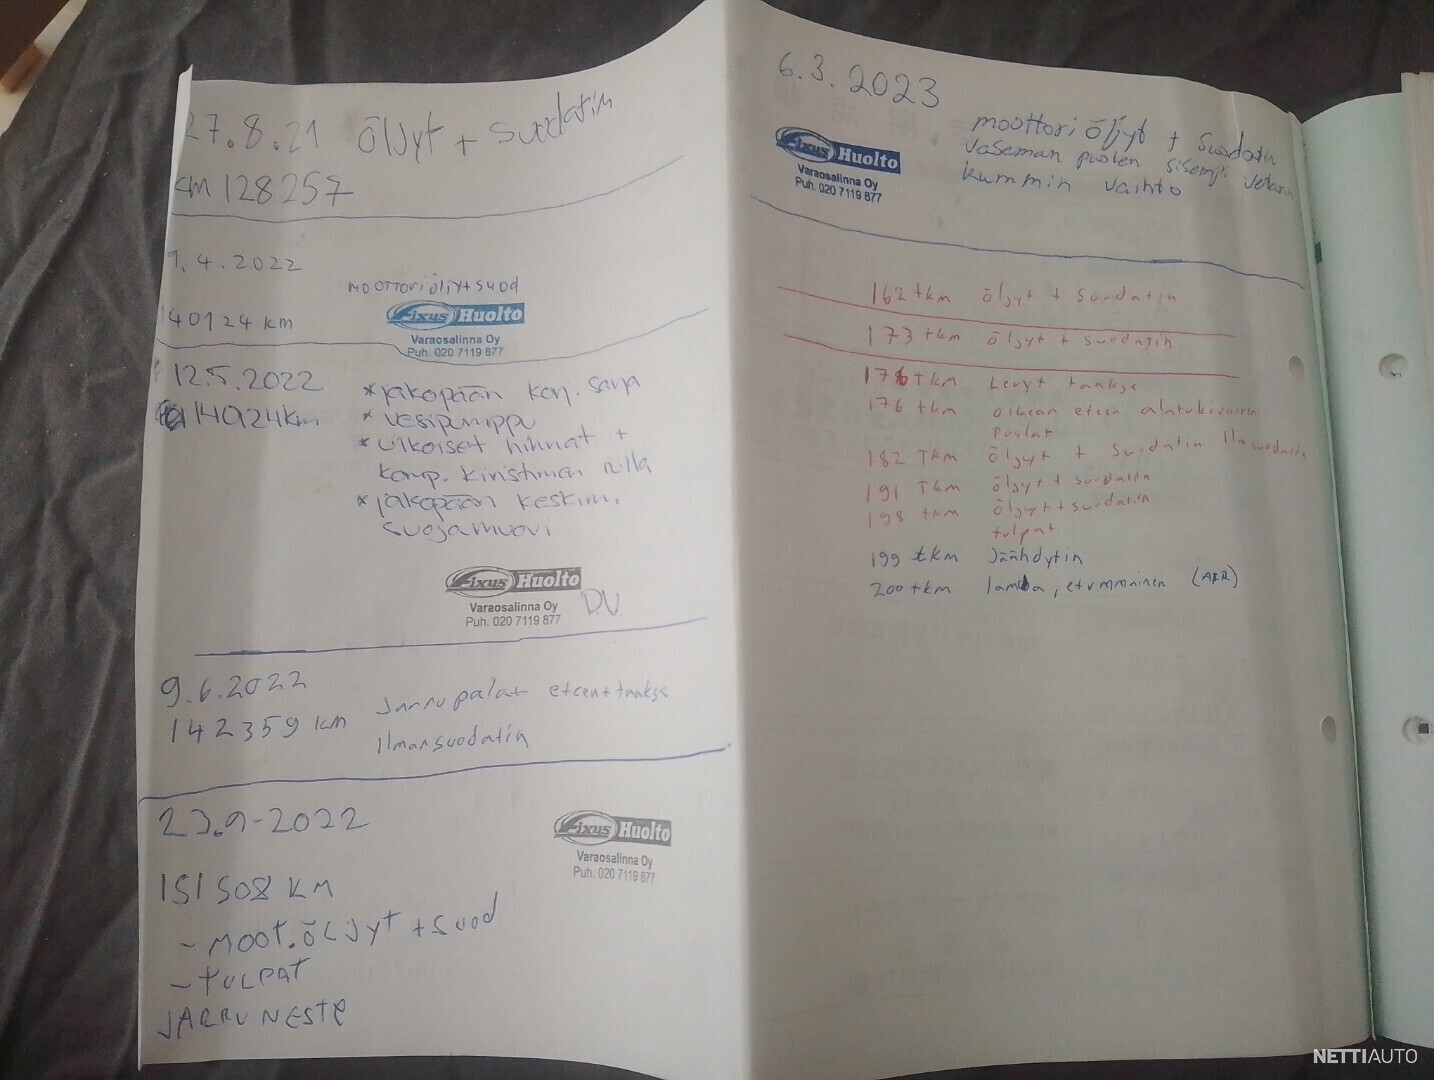 27.8.21 öljyt + suodatin
km 128257
1.4.2022
moottoriöljyt+suod
140124 km
Fixus Huolto
Varaosalinna Oy
Puh. 020 7119 877
12.5.2022
140924km
*jakopään korj. sarja
*vesipumppu
*ulkoiset hihnat +
komp. kiristimen rulla
*jakopään keskim.
suojamuovi
Fixus Huolto
Varaosalinna Oy
Puh. 020 7119 877
9.6.2022
142359 km
Jarrupalat eteen+taakse
Ilmansuodatin
23.9-2022
Fixus Huolto
Varaosalinna Oy
Puh. 020 7119 877
151508 KM
- MOOT.ÖLJYT + SUOD
- TULPAT
JARRUNESTE
6.3.2023
Fixus Huolto
Varaosalinna Oy
Puh. 020 7119 877
moottoriöljyt + suodatin
vaseman puolen sisemp.
kummin vaihto
162 tkm öljyt + suodatin
173 tkm öljyt + suodatin
Tkm Levyt taakse
176 tkm oikean eteen alatukivarren
puslat
182 Tkm öljyt + suodatin Ilmasuodatin
191 Tkm öljyt + suodatin
198 tkm öljyt+suodatin
tulpat
199 tkm Jäähdytin
200 tkm lamda, etummainen (AFR)
NETTIAUTO